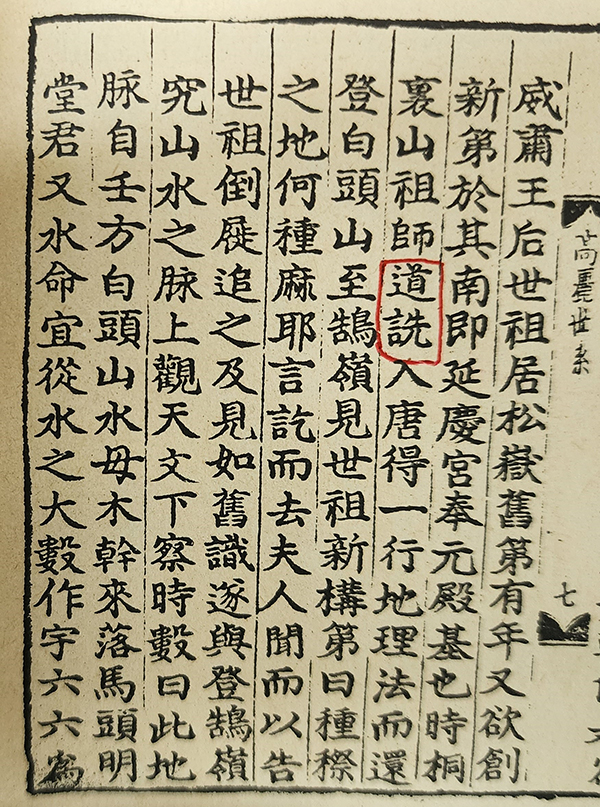 高麗世系
七
威肅王后世祖居松嶽舊第有年又欲創
新第於其南即延慶宮奉元殿基也時桐
裏山祖師道詵入唐得一行地理法而還
登白頭山至鵠嶺見世祖新構第曰種穄
之地何種麻耶言訖而去夫人聞而以告
世祖倒屣追之及見如舊識遂與登鵠嶺
究山水之脉上觀天文下察時數曰此地
脉自壬方白頭山水母木幹來落馬頭明
堂君又水命宜從水之大數作宇六六爲